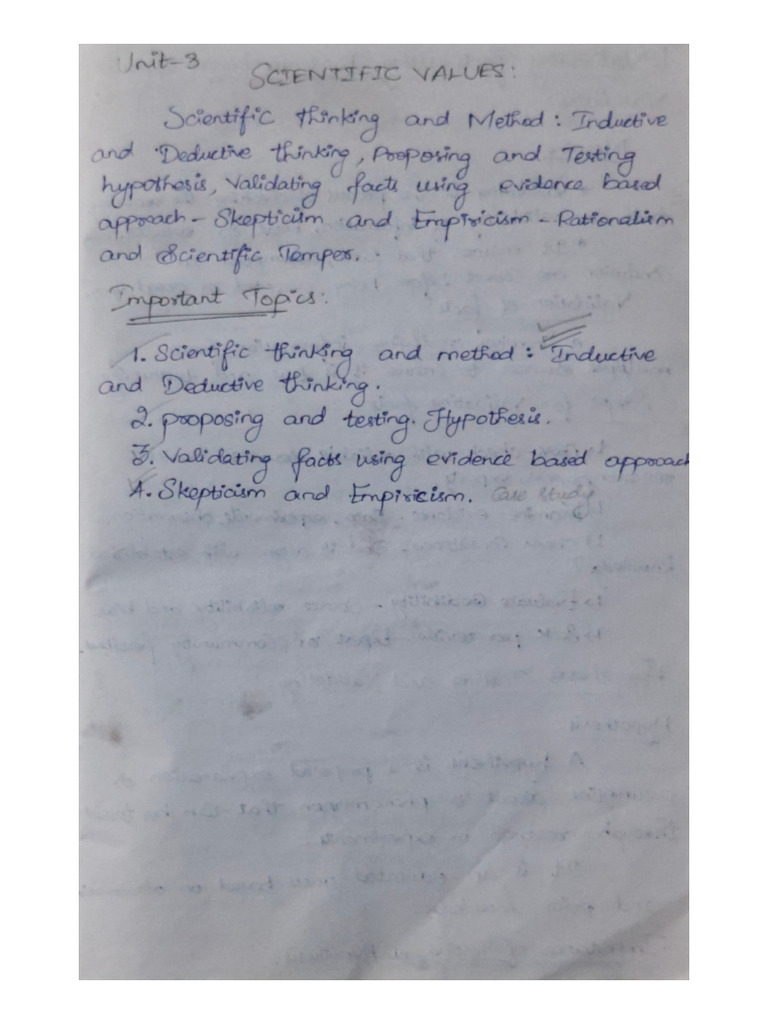 Unit-3
SCIENTIFIC VALUES:
Scientific thinking and Method: Inductive
and Deductive thinking, Proposing and Testing
hypothesis, Validating facts using evidence based
approach - Skepticism and Empiricism - Rationalism
and Scientific Temper.
Important Topics:
1. Scientific thinking and method: Inductive
and Deductive thinking.
2. proposing and testing. Hypothesis.
3. Validating facts using evidence based approach
4. Skepticism and Empiricism. Case study